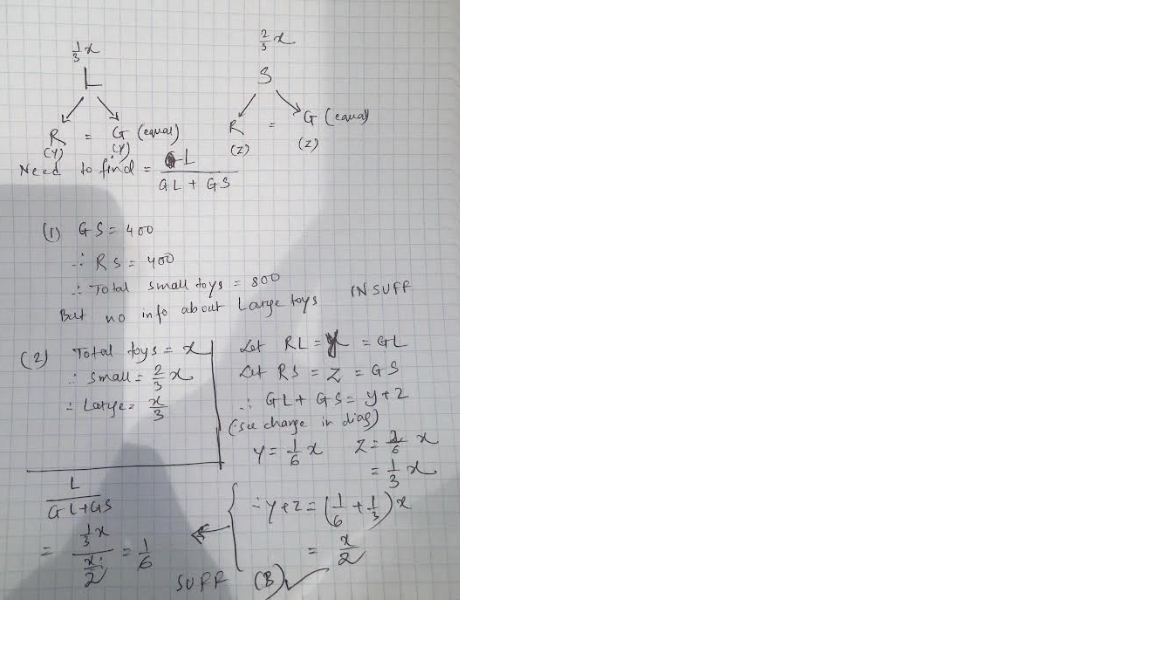 1/3 x
2/3 x
L
S
R = G (equal)
(Y) (Y)
R = G (equal)
(Z) (Z)
Need to find = GL / GL + GS
(1) GS = 400
∴ RS = 400
∴ Total small toys = 800
But no info about Large toys INSUFF
(2) Total toys = x
∴ small = 2/3 x
∴ Large = x/3
Let RL = y = GL
Let RS = Z = GS
∴ GL + GS = y + z
(see change in diag)
Y = 1/6 x Z = 2/6 x
= 1/3 x
∴ Y + z = (1/6 + 1/3) x
= x/2
L / GL + GS
= 1/3 x / x/2 = 1/6
SUFF (B) ✓